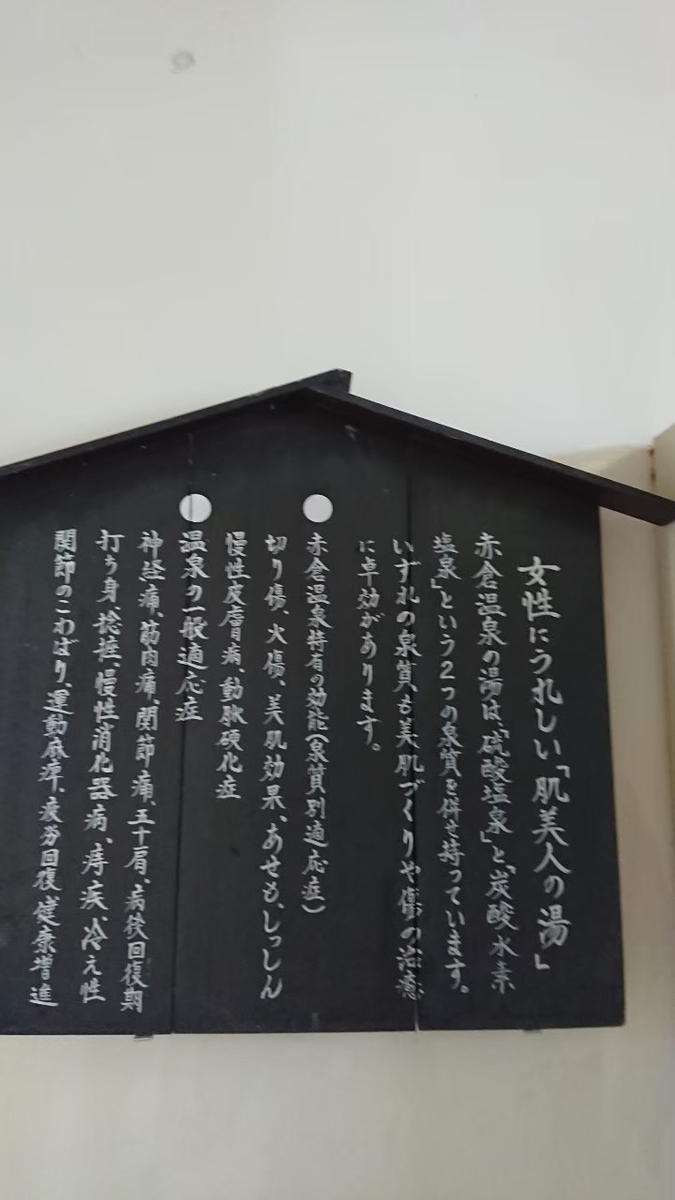 女性にうれしい「肌美人の湯」
赤倉温泉の湯は、「硫酸塩泉」と「炭酸水素
塩泉」という2つの泉質を併せ持っています。
いずれの泉質も美肌づくりや傷の治癒
に卓効があります。
赤倉温泉特有の効能(泉質別適応症)
切り傷、火傷、美肌効果、あせも、しっしん
慢性皮膚病、動脈硬化症
温泉の一般適応症
神経痛、筋肉痛、関節痛、五十肩、病後回復期
打ち身、捻挫、慢性消化器病、痔疾、冷え性
関節のこわばり、運動麻痺、疲労回復、健康増進